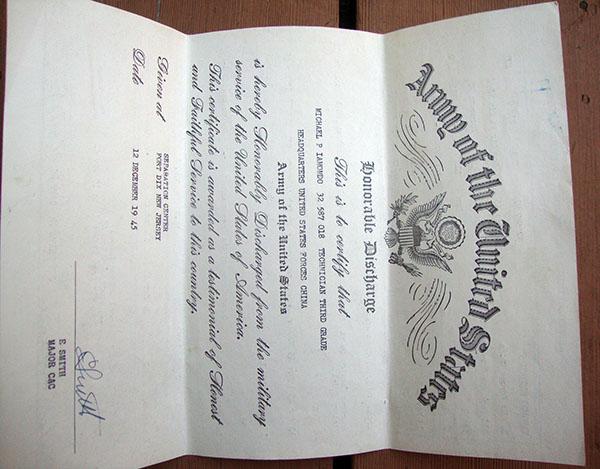 Army of the United States
Honorable Discharge
This is to certify that
MICHAEL P IAMONDO 32 587 018 TECHNICIAN THIRD GRADE
HEADQUARTERS UNITED STATES FORCES CHINA
Army of the United States
is hereby Honorably Discharged from the military
service of the United States of America.
This certificate is awarded as a testimonial of Honest
and Faithful Service to this country.
Given at SEPARATION CENTER
FORT DIX NEW JERSEY
Date 12 DECEMBER 19 45
E Smith
E SMITH
MAJOR CAC